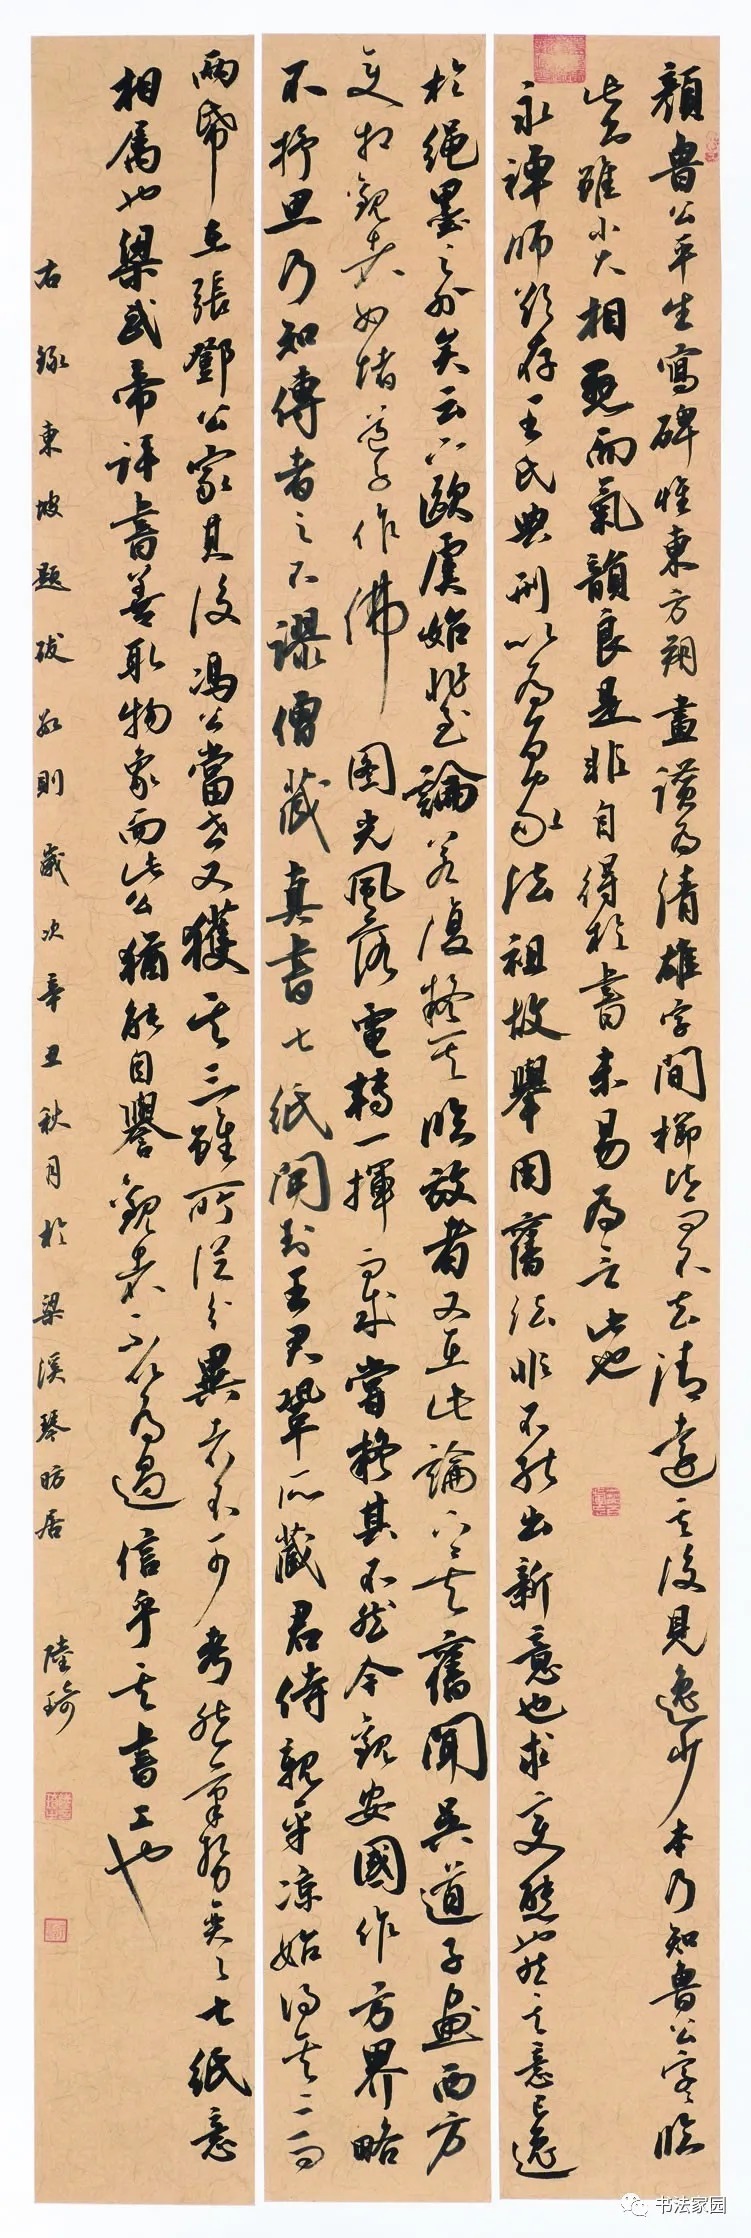 顏魯公平生寫碑惟東方朔畫讚為清雄字間櫛比而不失清遠其後見逸少本乃知魯公字字臨
此書雖小大相懸而氣韻良是非自得於書未易為言此也
永禪師欲存王氏典刑以為百家法祖故舉用舊法非不能出新意也求變態也然其意已逸
於繩墨之外矣云下歐虞始非至論若復疑其臨放者又在此論下矣舊聞吳道子畫西方
變相觀者如堵道子作佛圓光風落電轉一揮而成嘗疑其不然今觀安國作方界略
不抒思乃知傳者之不謬僧藏真書七紙開封王君鞏所藏君侍親平涼始得其二而
兩紙在張鄧公家其後馮公當世又獲其三雖所從分異者不可考然筆勢奕奕七紙意
相屬也梁武帝評書善取物象而此公猶能自譽觀者不以為過信乎其書工也
右錄東坡題跋數則歲次辛丑秋月於梁溪琴昉居
陸琦
书法家园